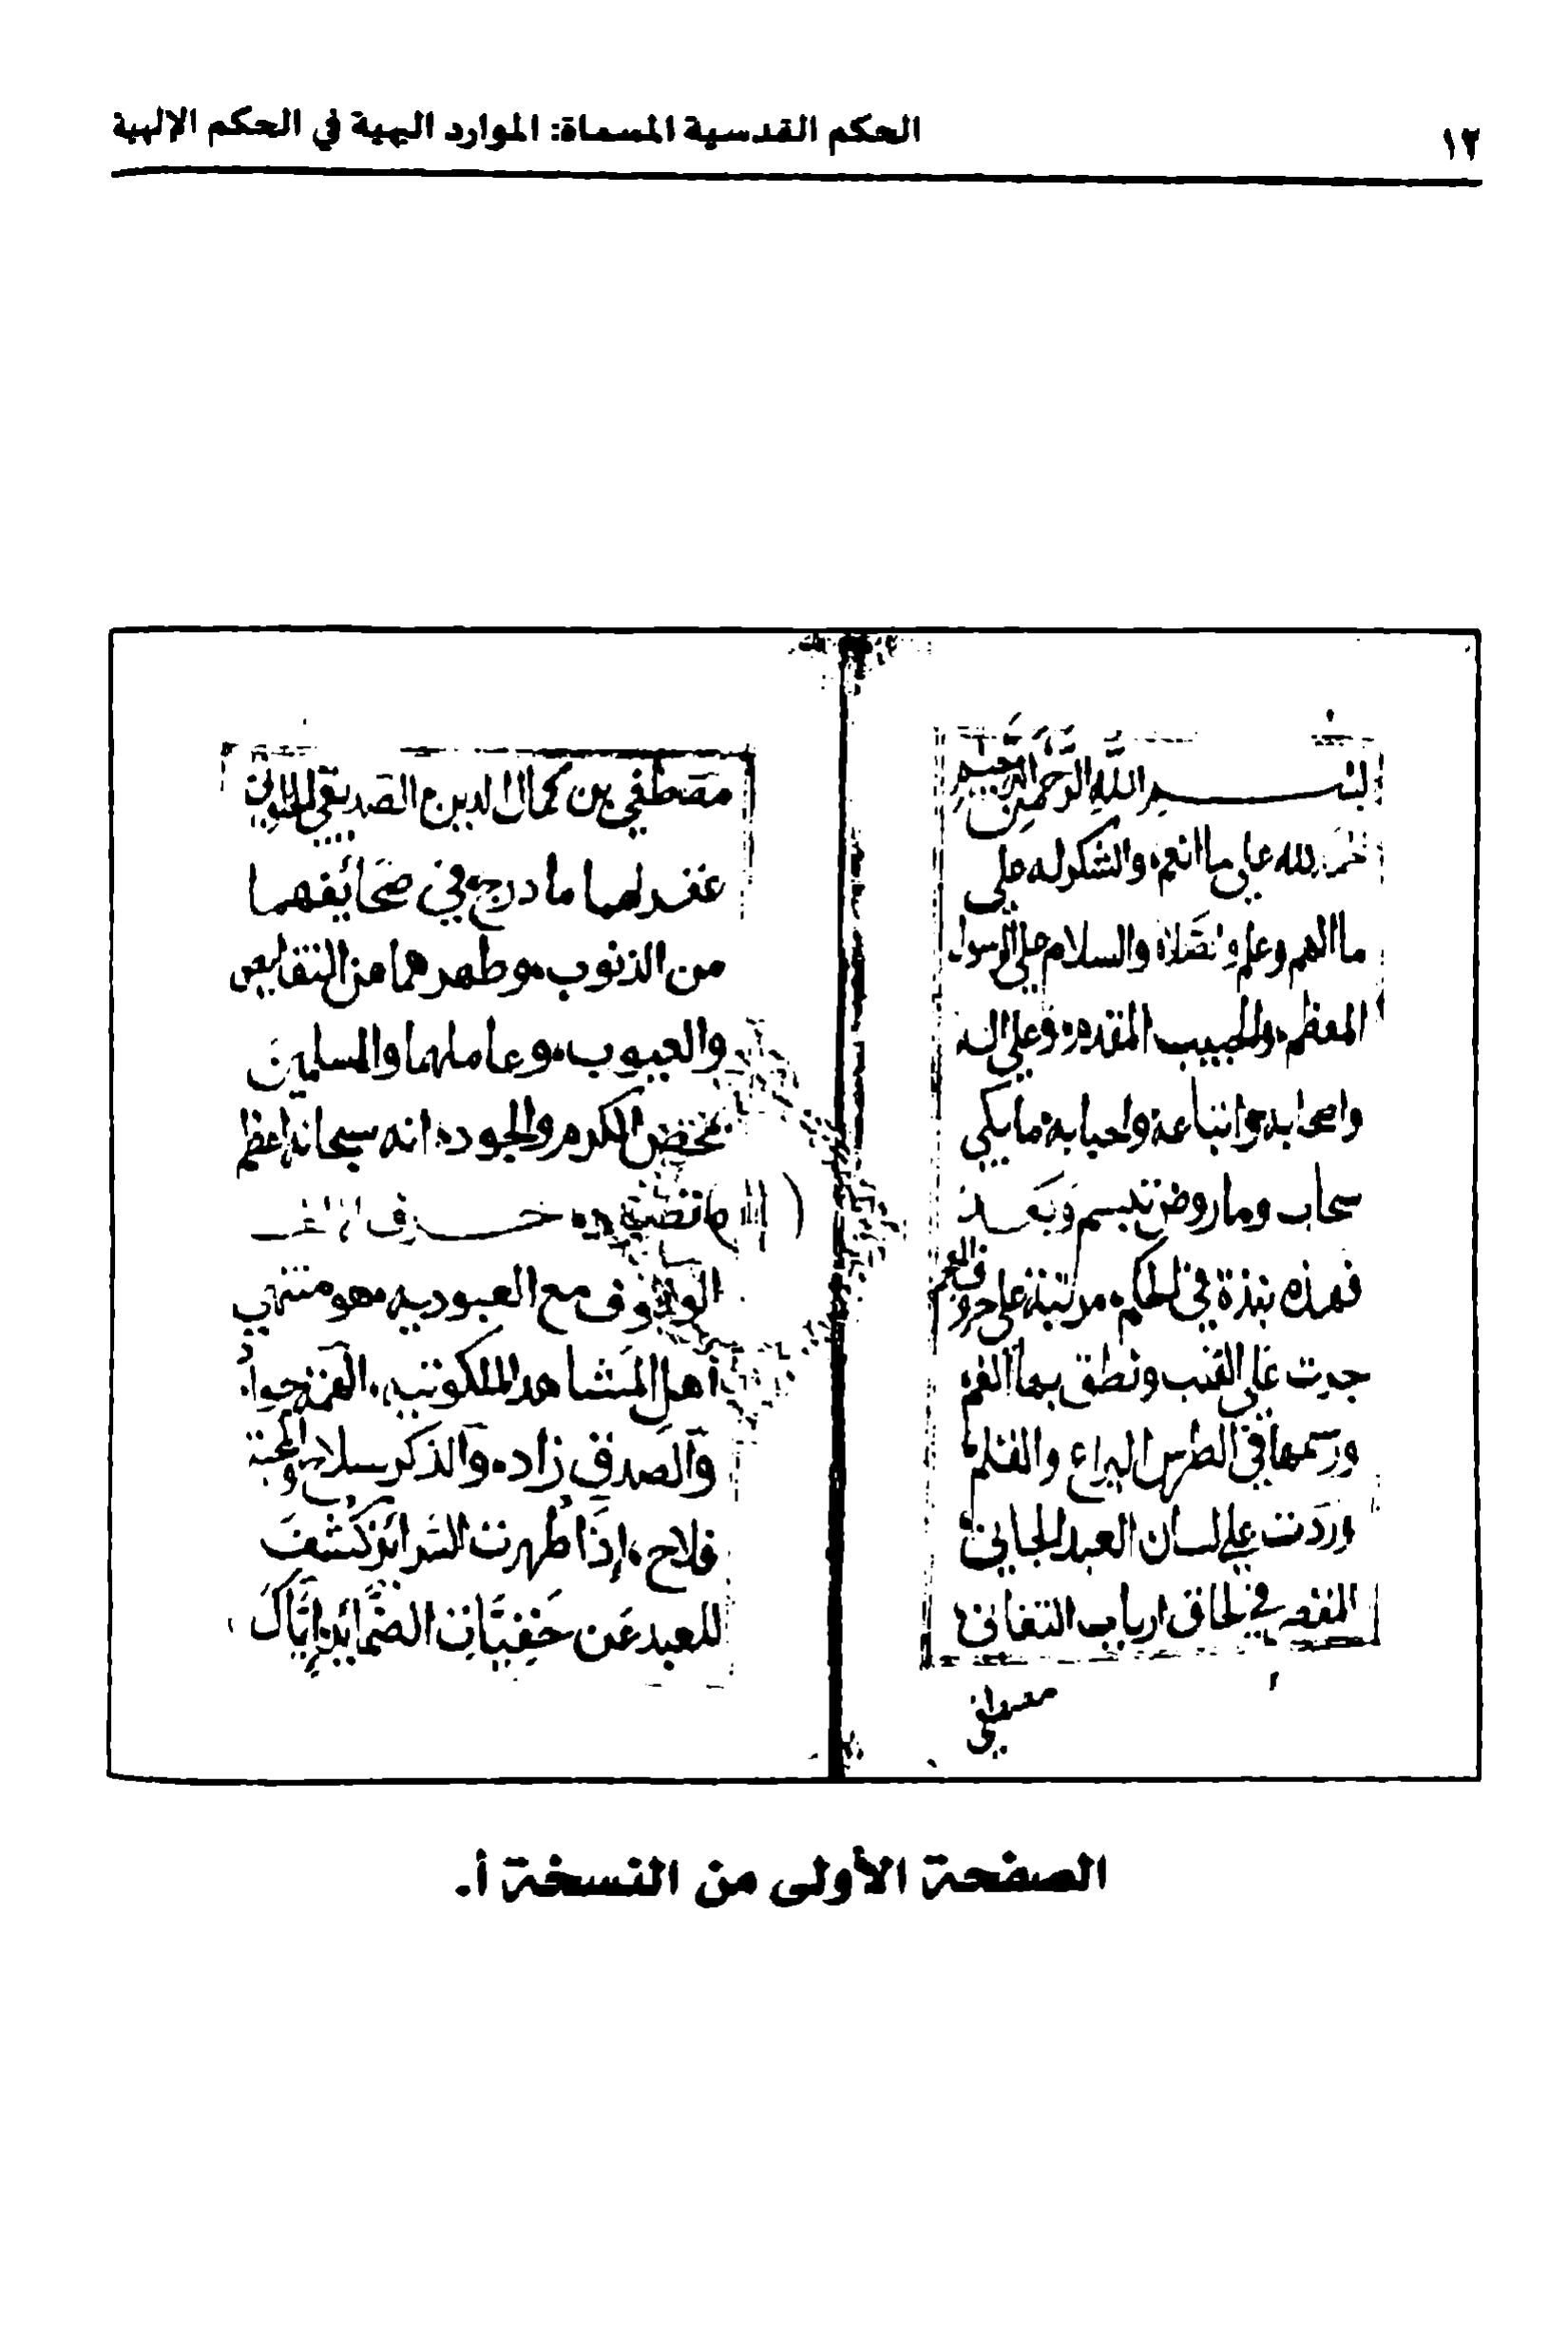 ١٢
الحكم القدسية المسماة: الموارد البهية في الحكم الإلهية
بسم الله الرحمن الرحيم
لله على ما انعم والشكر له على
ما الهم وعلم والصلاة والسلام على الرسول
المعظم والحبيب المقدم وعلى اله
واصحابه واتباعه واحبابه ما بكى
سحاب وما روض تبسم وبعد
فهذه نبذة في الحكم مرتبة على حروف المعجم
جرت على القلب ونطق بها الفم
ورسمها في الطرس اليراع والقلم
وردت على لسان العبد الجاني
المقصر في لحاق ارباب التفاني
مصطفى
مصطفى بن كمال الدين الصديقي
غفر لهما ما درج في صحائفهما
من الذنوب وطهرهما من النقايص
والعيوب وعاملهما والمسلمين
بمحض الكرم والجود انه سبحانه اعظم
حرف الالف
الوقوف مع العبوديه هو منتهى
اهل المشاهد الملكوتيه العزم جواد
والصدق زاد والذكر سلاح والمحبة
فلاح اذا ظهرت السرائر كشف
للعبد عن خفيات الضمائر اياك
الصفحة الأولى من النسخة أ.